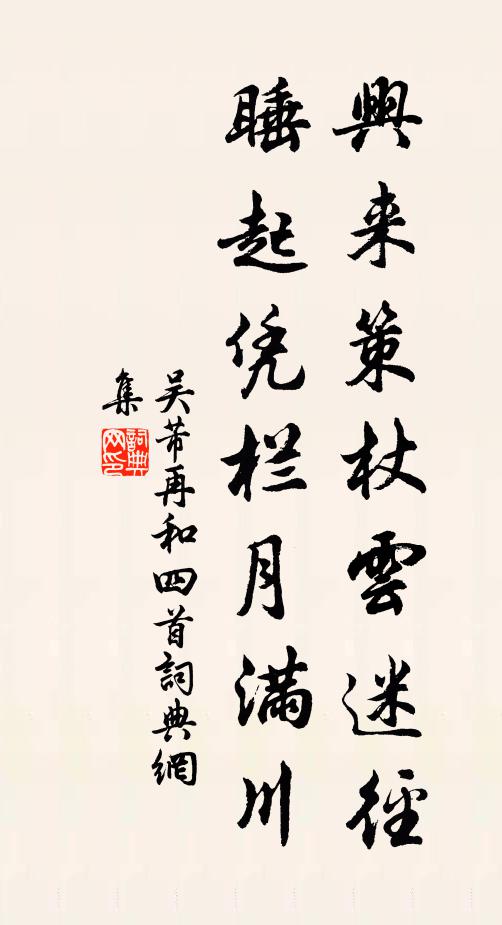 興来策杖雲迷徑
睡起凭栏月满川
吴芾再和四首詞典網
集
詞典
网印